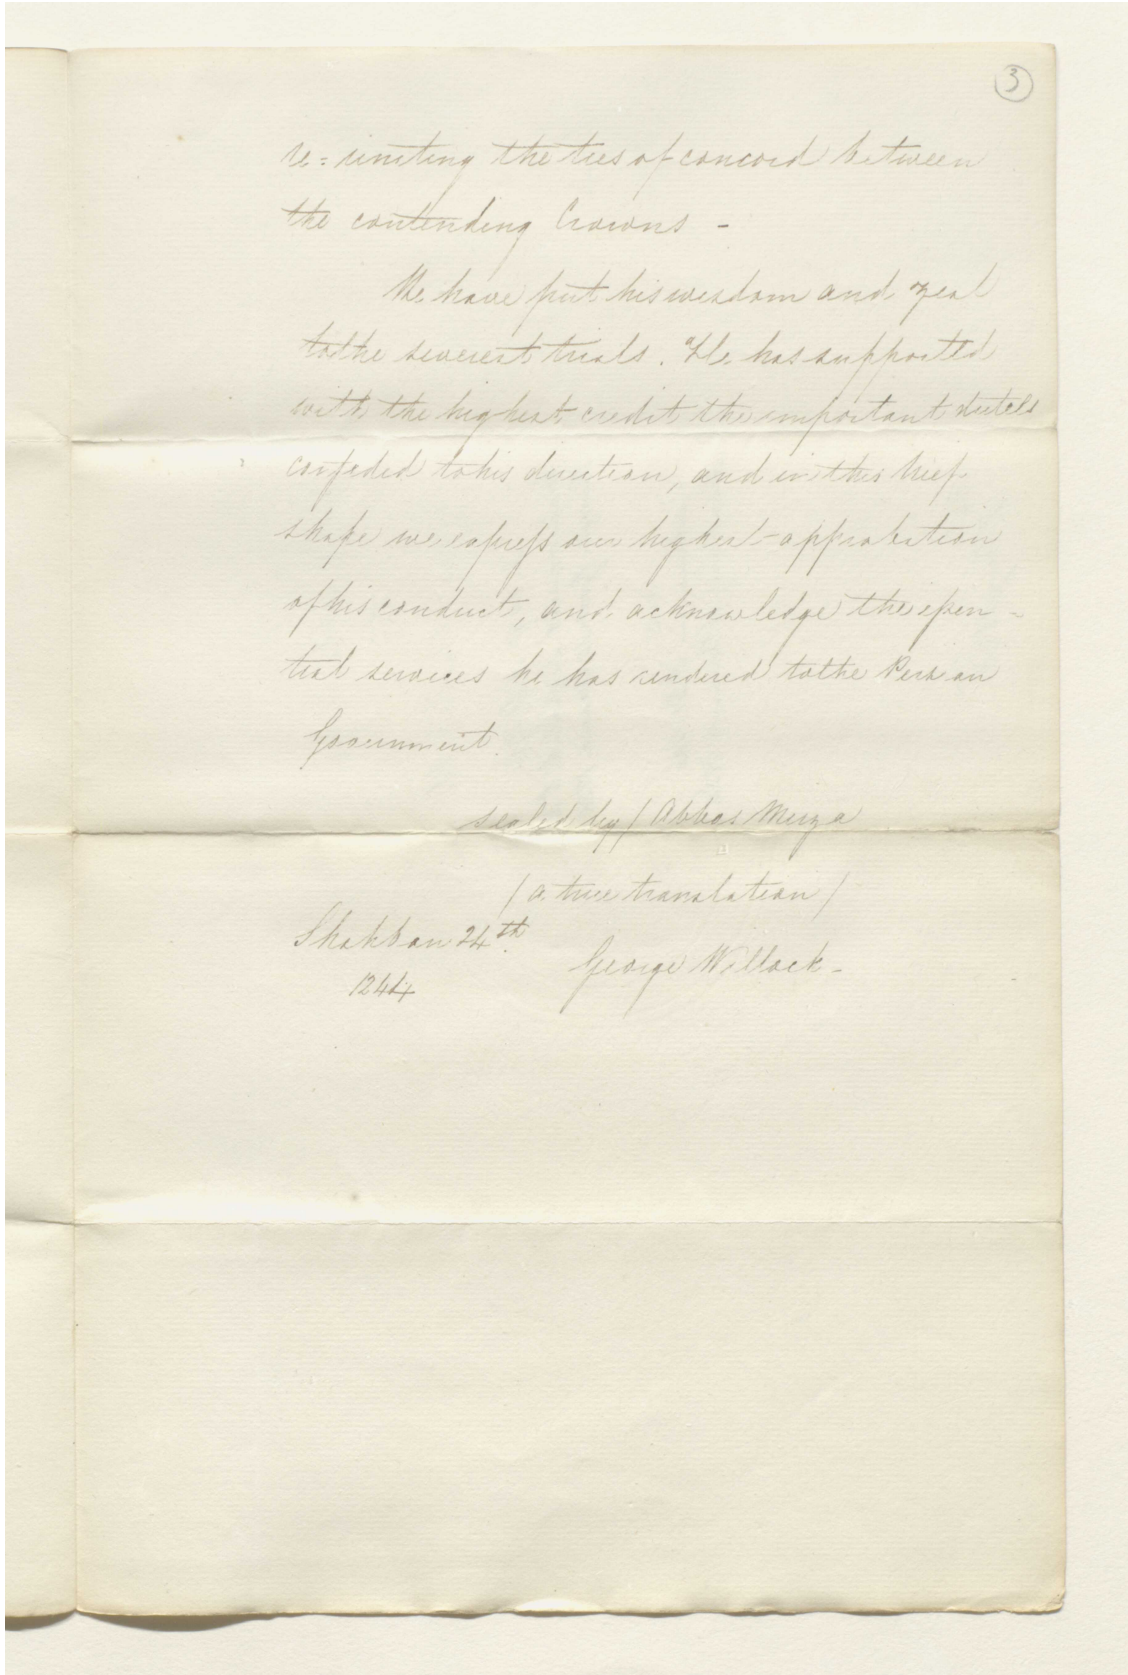 3
re=uniting the ties of concord between
the contending Crowns -
We have put his wisdom and zeal
to the severest trials. He has supported
with the highest credit the important duties
confided to his direction, and in this brief
shape we express our highest approbation
of his conduct, and acknowledge the essen-
tial services he has rendered to the Persian
Government.
sealed by / Abbas Mirza
/ a true translation /
Shahban 24th.
George Willock -
1244